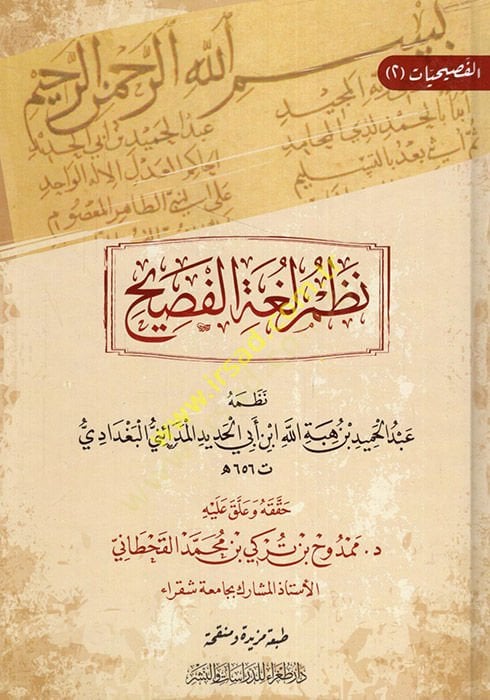 الفصيحيات (٢)
بسم الله الرحمن الرحيم
عبد الحميد بن أبي الحديد
الحاكم العدل الإله الواحد
على النبي الطاهر المعصوم
نَظْمُ لُغَةِ الفَصِيحِ
نَظَمَهُ
عَبْدُ الحَمِيدِ بْنُ هِبَةِ اللَّهِ ابْنِ أَبِي الحَدِيدِ المَدَائِنِيُّ البَغْدَادِيُّ
ت ٦٥٦ هـ
حَقَّقَهُ وَعَلَّقَ عَلَيْهِ
د. مَمْدُوحُ بْنُ تُرْكِي بْنِ مُحَمَّدٍ القَحْطَانِيُّ
الأستاذ المشارك بجامعة شقراء
طبعة مزيدة ومنقحة
دار طغراء للدراسات والنشر
www.irsad.com.tr